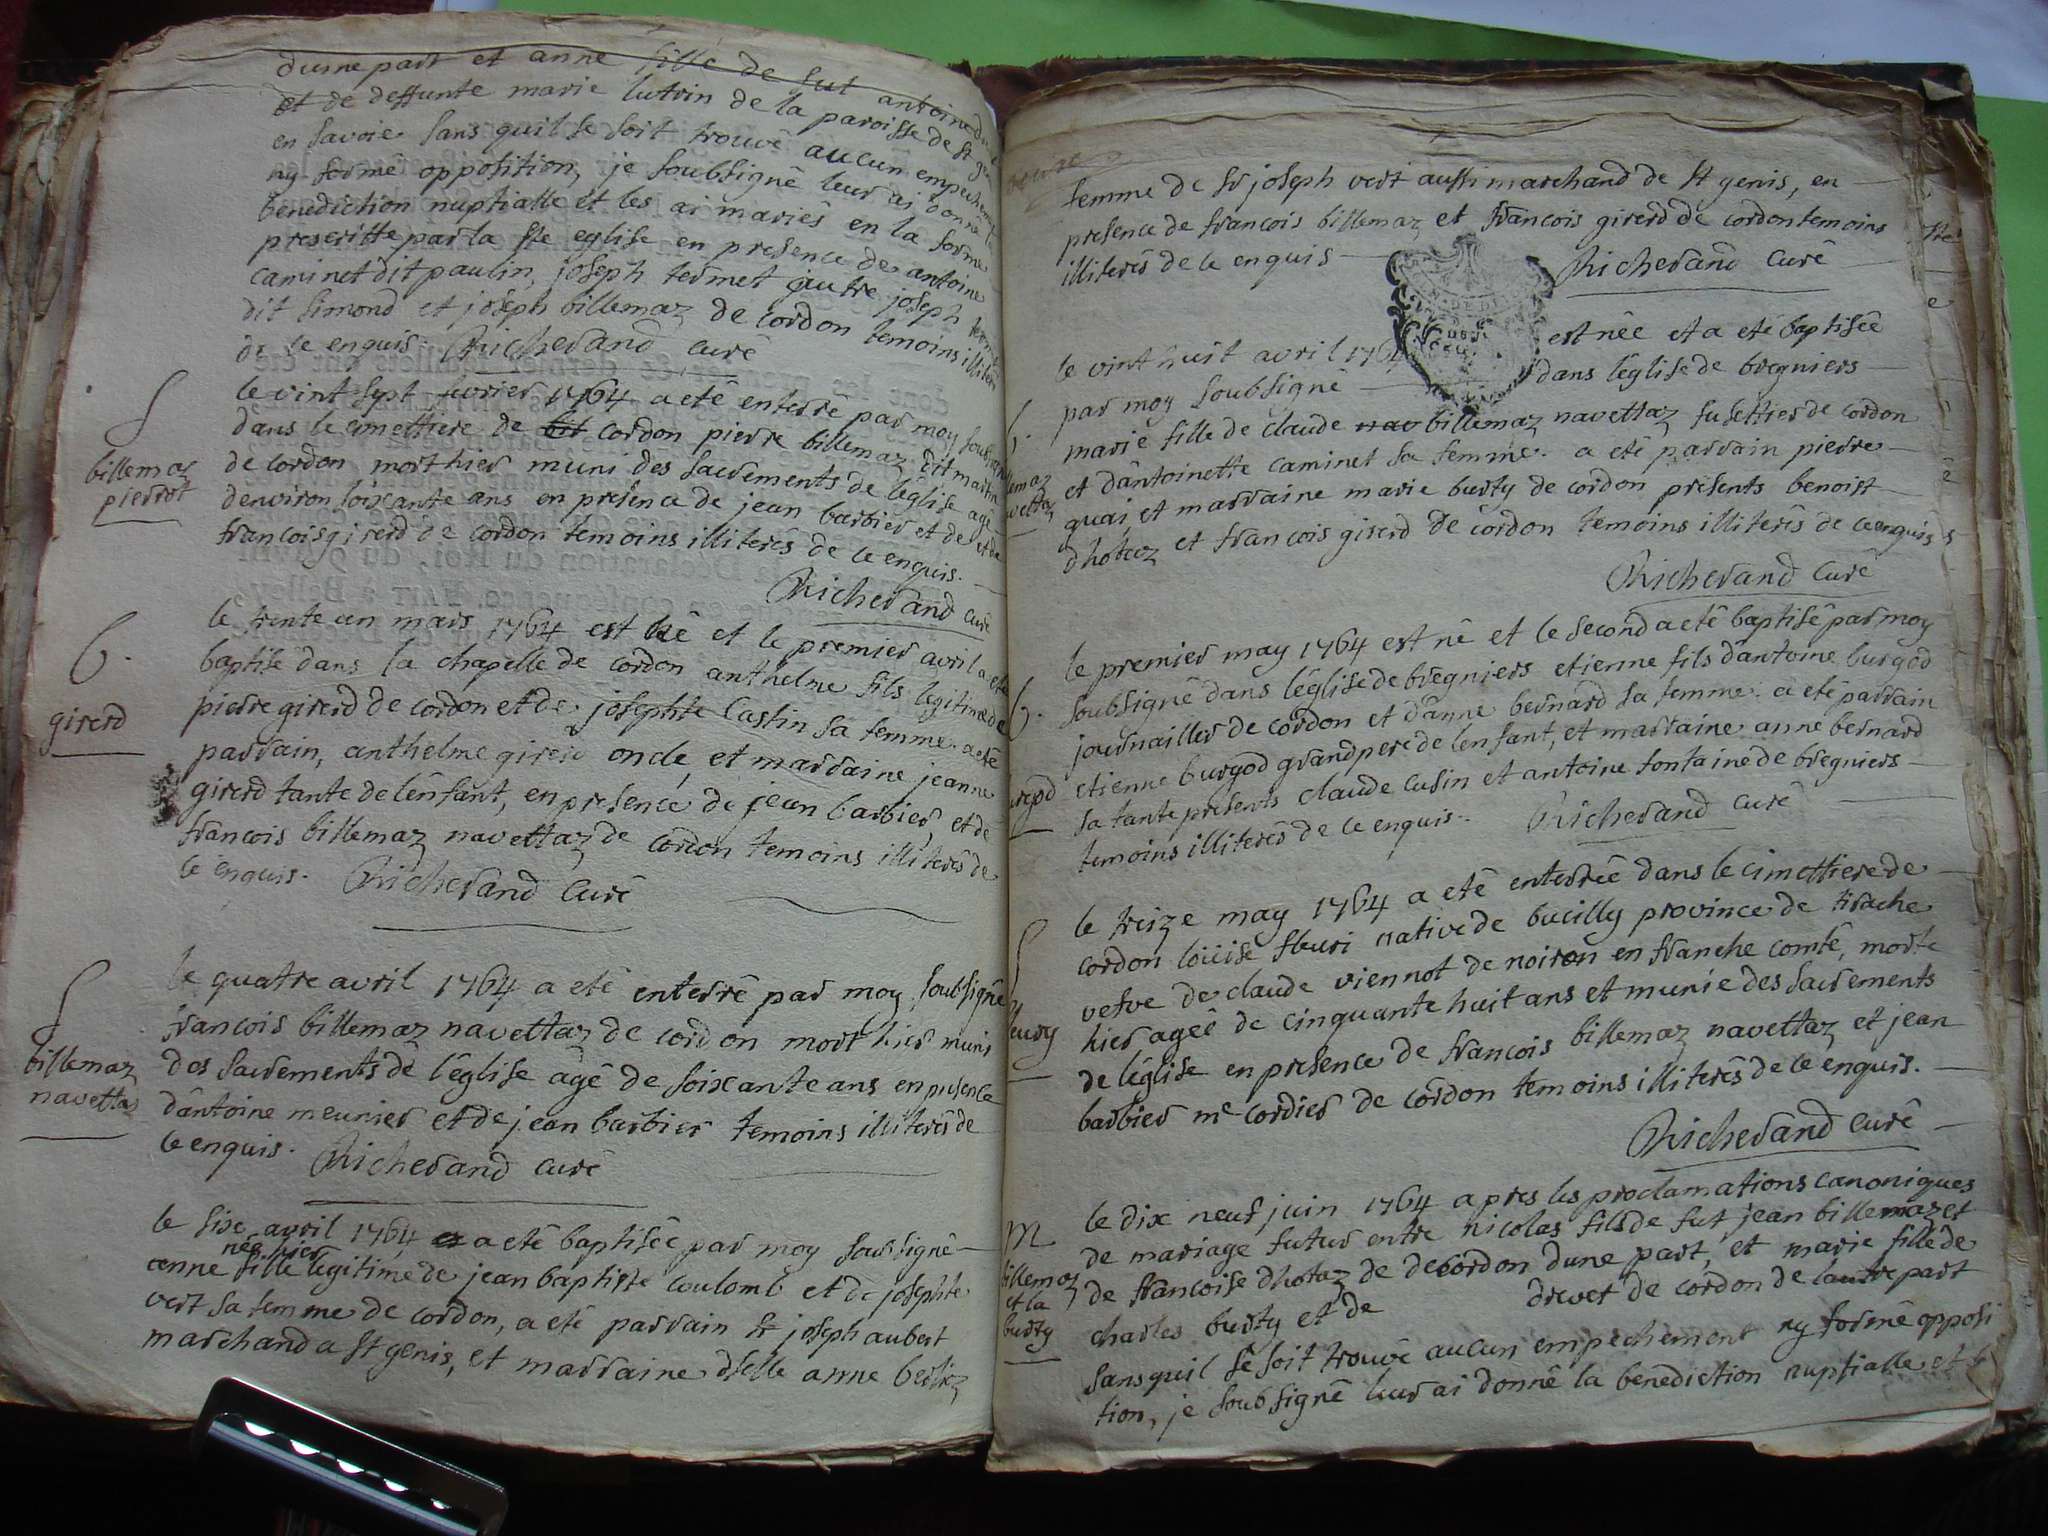 dune part et anne fille de fut antoine
et de deffunte marie lutrin de la paroisse de st
en savoie sans quil se soit trouvé aucun empechement
ny formé opposition, je soubsigné leur ai donné la
benediction nuptialle et les ai mariés en la forme
prescritte par la ste eglise en presence de antoine
caminet dit paulin, joseph termet autre joseph
dit simond et joseph billemaz de cordon temoins
de ce enquis. Richerand curé
S
billemaz
pierrot
le vint sept fevrier 1764 a eté enterré par moy
dans le cimettiere de cordon pierre billemaz dit martin
de cordon mort hier muni des sacrements de l'église agé
denviron soixante ans en presence de jean barbier et de
francois girerd de cordon temoins illiterés de ce enquis.
Richerand curé
b.
girerd
le trente un mars 1764 est né et le premier avril a eté
baptisé dans la chapelle de cordon anthelme fils legitime de
pierre girerd de cordon et de josephte Castin sa femme. a eté
parrain, anthelme girerd oncle, et marraine jeanne
girerd tante de l'enfant, en presence de jean barbier, et de
francois billemaz navettaz de cordon temoins illiterés de
ce enquis. Richerand curé
S
billemaz
navettaz
le quatre avril 1764 a eté enterré par moy soubsigné
francois billemaz navettaz de cordon mort hier muni
des sacrements de l'église agé de soixante ans en presence
d'antoine meunier et de jean barbier temoins illiterés de
ce enquis. Richerand curé
le six avril 1764 a eté baptisée par moy soussigné
née hier
anne fille légitime de jean baptiste coulomb et de josephte
vert sa femme de cordon, a eté parrain sr joseph aubert
marchand a st genis, et marraine dselle anne
femme de sr joseph vert aussi marchand de st genis, en
presence de francois billemaz et francois girerd de cordon temoins
illiterés de ce enquis Richerand curé
le vint huit avril 1764 est née et a eté baptisée
par moy soubsigné dans l'église de bregniers
marie fille de claude billemaz navettaz fusettier de cordon
et d'antoinette caminet sa femme. a eté parrain pierre
quai et marraine marie burty de cordon presents benoist
dhotaz et francois girerd de cordon temoins illiterés de ce enquis
Richerand curé
b.
le premier may 1764 est né et le second a eté baptisé par moy
soubsigné dans l'église de bregniers etienne fils d'antoine burgod
journaillier de cordon et d'anne bernard sa femme. a eté parrain
etienne burgod grandpere de l'enfant, et marraine anne bernard
sa tante presents claude cusin et antoine fontaine de bregniers
temoins illiterés de ce enquis. Richerand curé
le treize may 1764 a eté enterrée dans le cimettiere de
cordon loüise fleuri native de bucilly province de tirache
vefve de claude viennot de noiron en franche comté, morte
hier agée de cinquante huit ans et munie des sacrements
de l'église en presence de francois billemaz navettaz et jean
barbier me cordier de cordon temoins illiterés de ce enquis.
Richerand curé
M
billemaz
et la
burty
le dix neuf juin 1764 apres les proclamations canoniques
de mariage futur entre nicolas fils de fut jean billemaz et
de francoise dhotaz de cordon dune part, et marie fille de
charles burty et de drevet de cordon de lautre part
sans quil se soit trouvé aucun empechement ny formé opposi
tion, je soubsigné leur ai donné la benediction nuptialle et